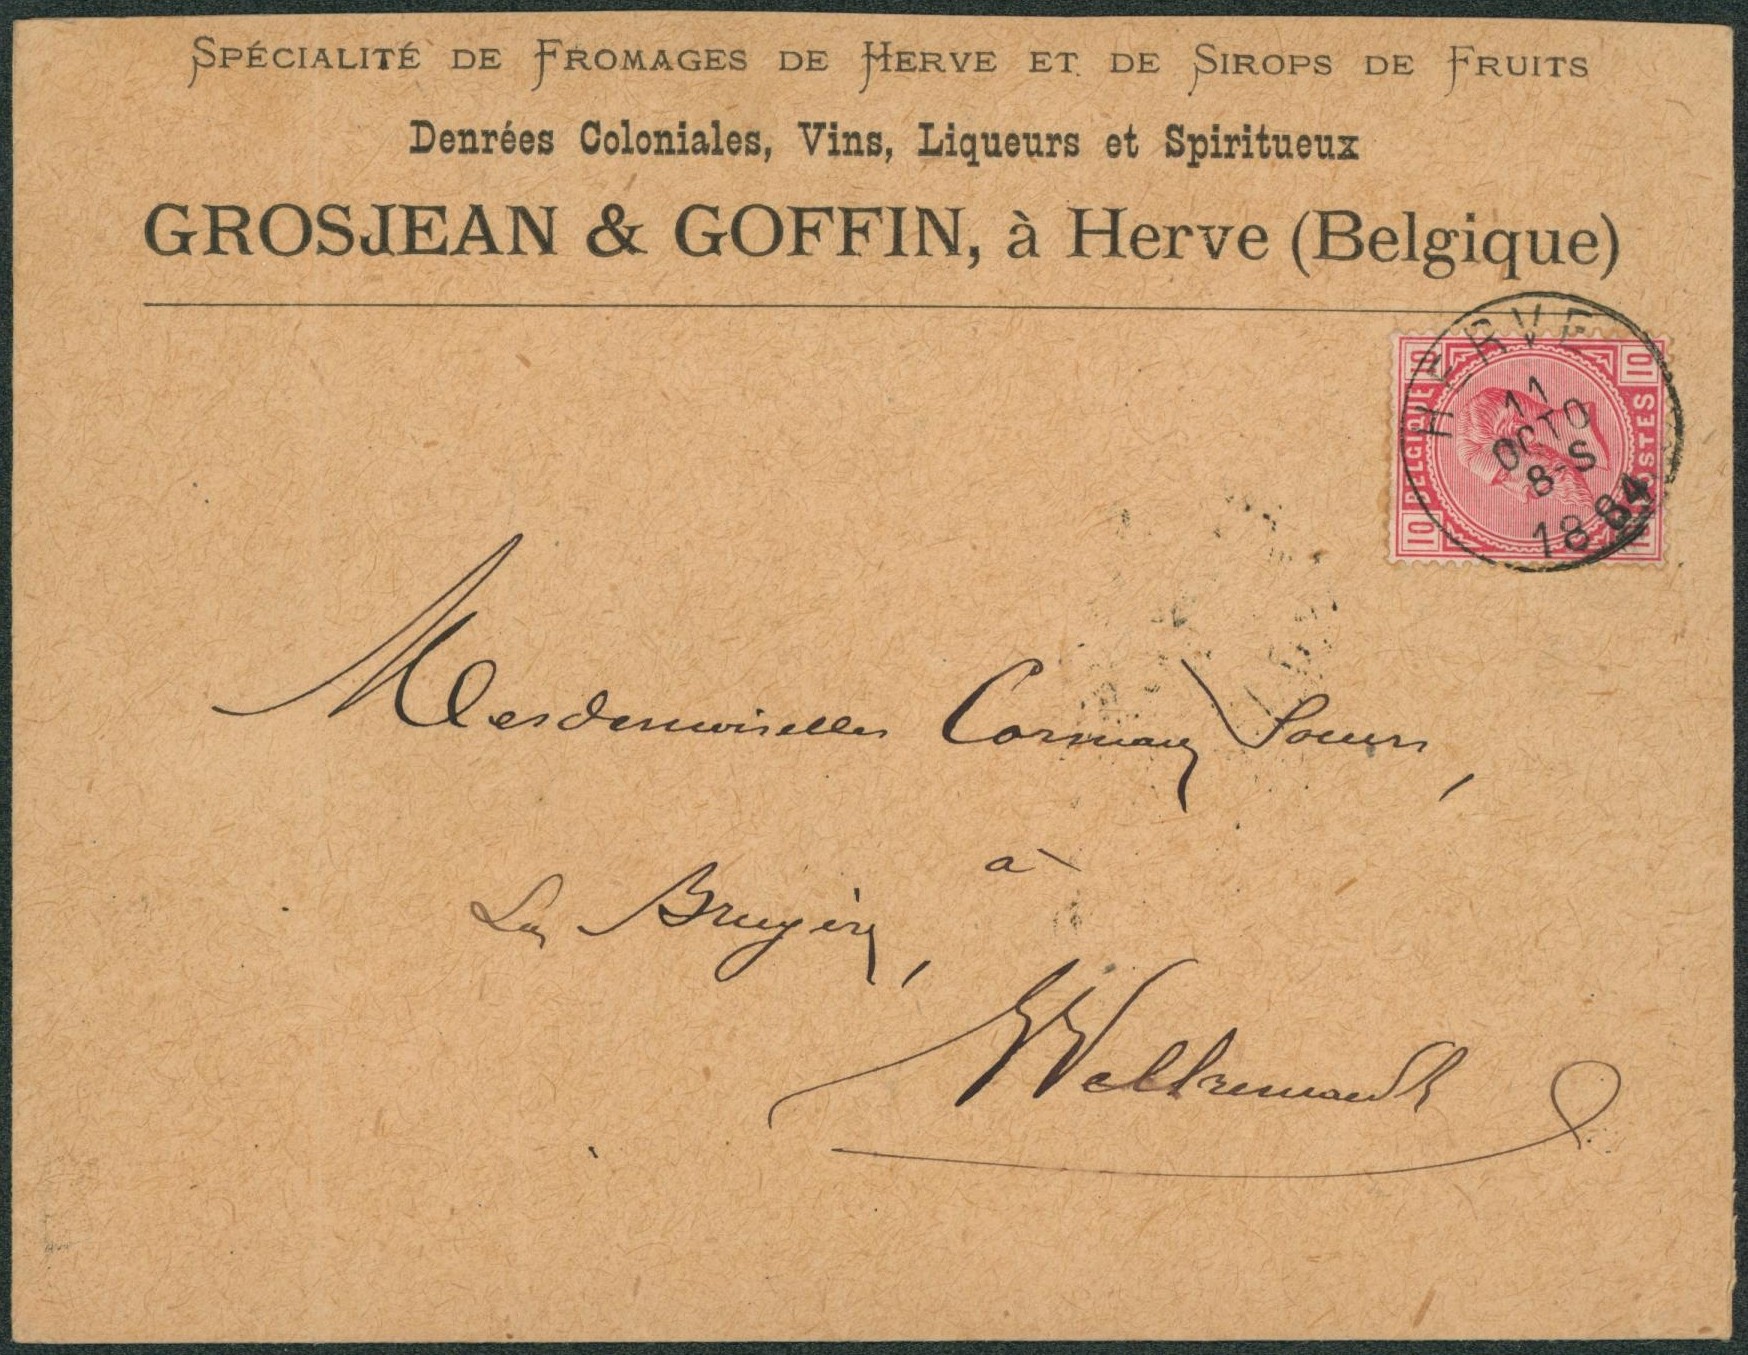 SPÉCIALITÉ DE FROMAGES DE HERVE ET DE SIROPS DE FRUITS
Denrées Coloniales, Vins, Liqueurs et Spiritueux
GROSJEAN & GOFFIN, à Herve (Belgique)
HERVE
11
OCTO
8-S
1884
10 BELGIQUE 10
10 POSTES 10
Mesdemoiselles Cormaux Soeurs,
à
La Bruyère,